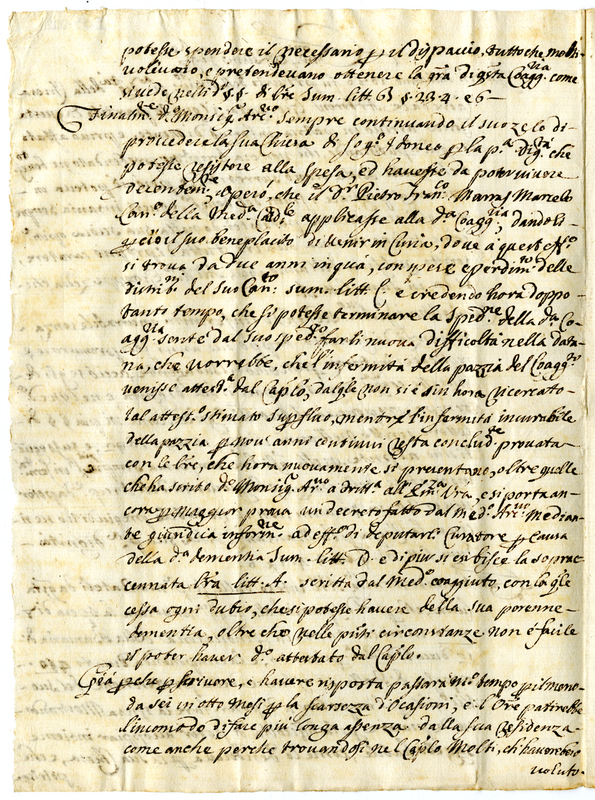 potesse spendere il necessario p il dispaccio, tutto che molti
volevano, e pretendevano ottenere la gra di qsta Coagg.ria come
si vede nelli d.i §§. di lre Sum. litt. B §. 2. 3. 4. e 6 —
Finalm.te d.o Monsig.r Arc.vo sempre continuando il suo zelo di
provedere la sua Chiesa di sog.o idoneo p la p.a Dig.tà che
potesse resistere alla spesa, ed havesse da poter vivere
decentem.te, operò, che il D.r Pietro Fran.co Marras Marcelo
Can.co della Med.a Catt.le applicasse alla d.a Coagg.ria, dandoli
p ciò il suo beneplacito di venir in Curia, dove a quest'eff.o
si trova da due anni in quà, con spese e perdim.to delle
distrib.ni del suo Can.to Sum. litt. C. e credendo hora doppo
tanto tempo, che si potesse terminare la sped.ne della d.a Co-
agg.ria sente dal suo sped.re farli nuova difficoltà nella data-
ria, che vorrebbe, che l'infermità della pazzia del Coagg.to
venisse attest.a dal Caplo, dal qle non si è sin hora ricercato
tal attest.o stimato supfluo, mentre l'infermità incurabile
della pazzia p nove anni continui resta conclud.te provata
con le lre, che hora nuovamente si presentano, oltre quelle
che ha scritto d.o Monsig.r Arc.vo a dritt.a all'Em.za Vra, e si porta an-
cora p maggior prova un decreto fatto dal med.o Arc.vo median-
te giuridica inform.ne ad eff.o di deputarli Curatore p causa
della d.a dementia Sum. litt. D. e di più si esibisce la soprac-
cennata lra litt. A. scritta dal med.o coagiuto, con la qle
cessa ogni dubio, che si potesse havere della sua perenne
dementia, oltre che nelle pnti circonstanze non è facile
il poter haver d.o attestato dal Caplo.
p che p scrivere, e havere risposta passarà m.to tempo p il meno
da sei in otto mesi p la scarsezza d'ocasioni, e l'Ore patirebbe
l'incomodo di fare più longa assenza dalla sua residenza
come anche perche trovandosi nel Caplo molti, ch'haverebero
voluto.